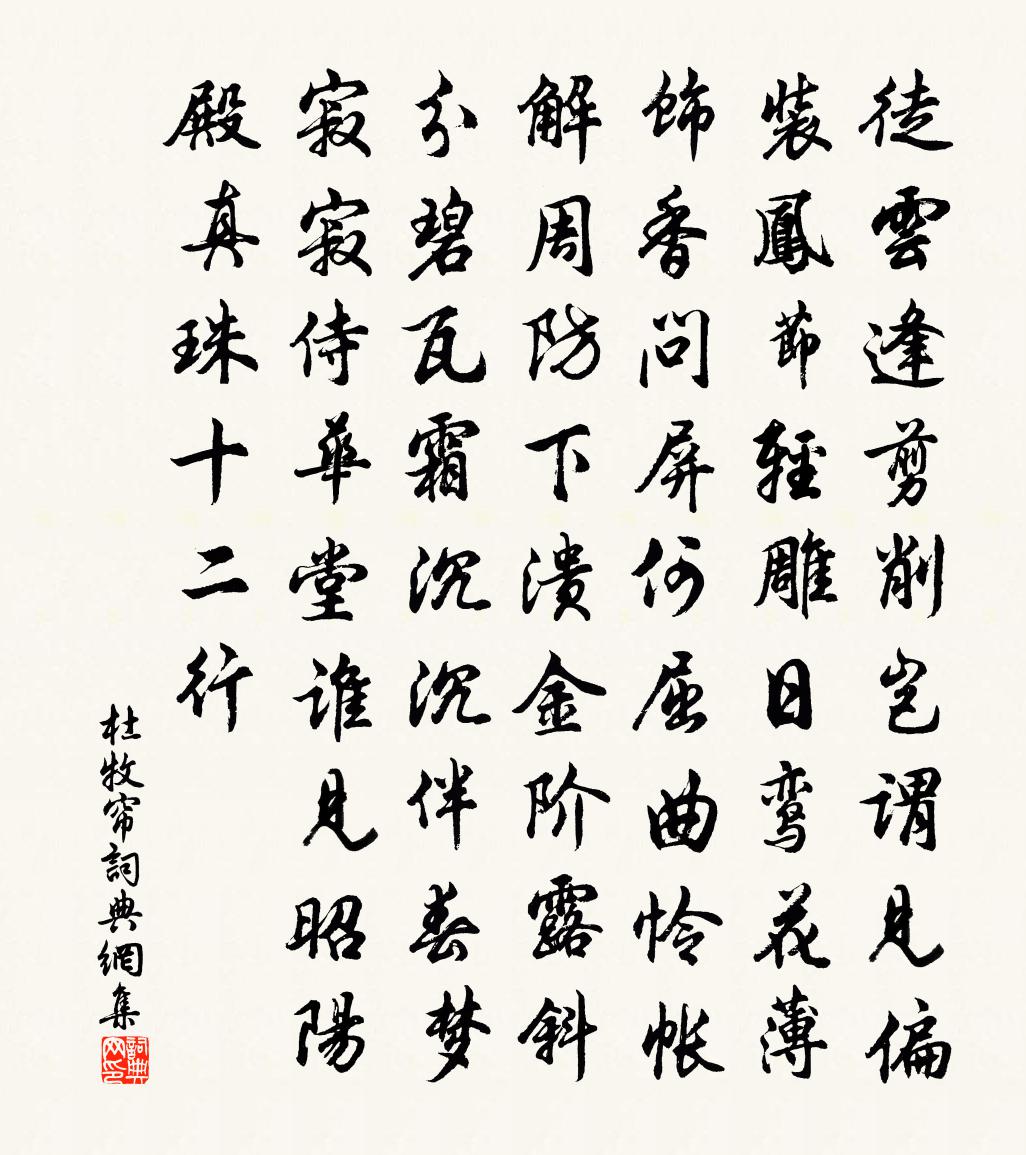 徒雲逢剪削岂谓见偏
装鳳節輕雕日鸾花薄
饰香问屏何屈曲怜帐
解周防下溃金阶露斜
分碧瓦霜沉沉伴春梦
寂寂侍華堂谁见昭陽
殿真珠十二行
杜牧帘詞典網集
詞典网印